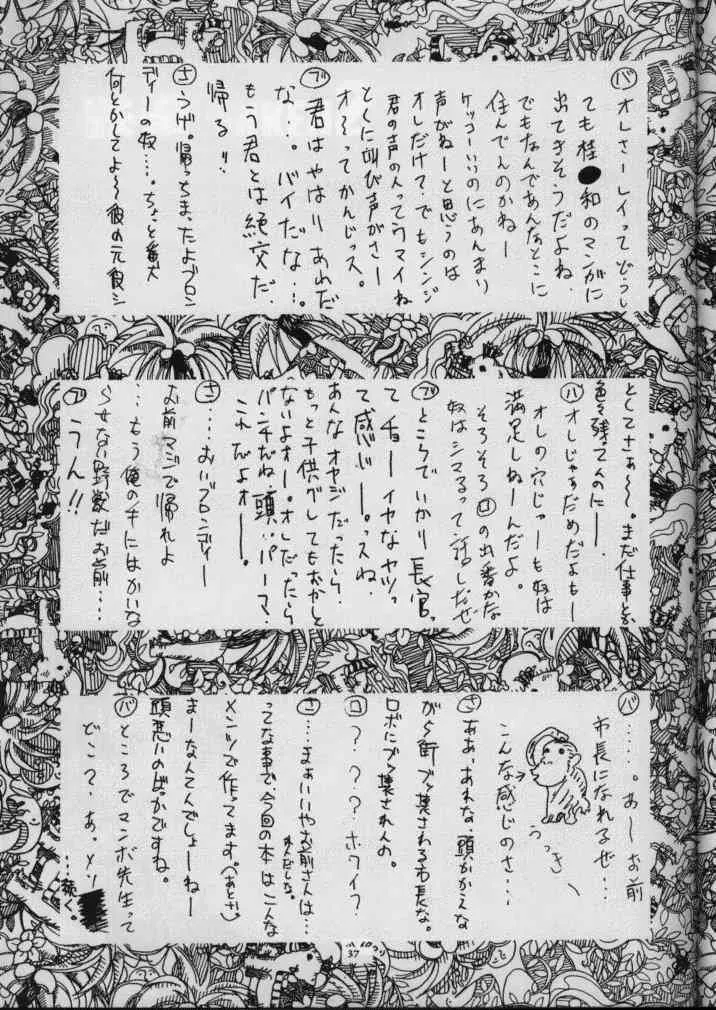 バ オレさーレイってどうし
ても桂●和のマンガに
出てきそうだよね、
でもなんであんなとこに
住んでんのかねー
ケッコーいいのにあんまり
声がねーと思うのは
オレだけ？でもシンジ
君の声の人ってウマイね
とくに叫び声がさー
オーってかんじっス。
ブ 君はやはりあれだ
な…。バイだな…。
もう君とは絶交だ、
帰る!!
さ うげ。帰っちまったよブロン
ディーの奴…。ちょっと
何とかしてよ〜彼の元
としてさぁ〜〜。まだ仕事とか
色々残ってんのにー
バ オレじゃぁだめだよもー
オレの穴じゃーも奴は
満足しねーんだよ。
そろそろロの出番かな
奴はシマるって話しだぜ
ブ ところでいかり長官っ
てチョーイヤなヤツっ
て感じー。っスね、
あんなオヤジだったら、
もっと子供グレてもおかしく
ないよォー。オレだったら
パンチだね、頭…パーマ、
これだよォー。
さ …おいブロンディー
お前マジで帰れよ
…もう俺の手にはおえな
らせない野獣だお前…
ブ うん!!
バ ……。あーお前
市長になれるぜ…
こんな感じのさ…
うっきー
さ ああ、あれな、頭かかえな
がら街ブッ壊される市長な。
ロボにブッ壊されんの。
ロ ？？？ホワイ？
さ …まぁいいやお前さんは…
ってな事で今回の本はこんな
メンツで作ってます。(あとさ)
まーなんてんでしょーねー
頭悪いのばっかですね。
バ ところでマンボ先生って
どこ？、あ、メソ
…続く。
37